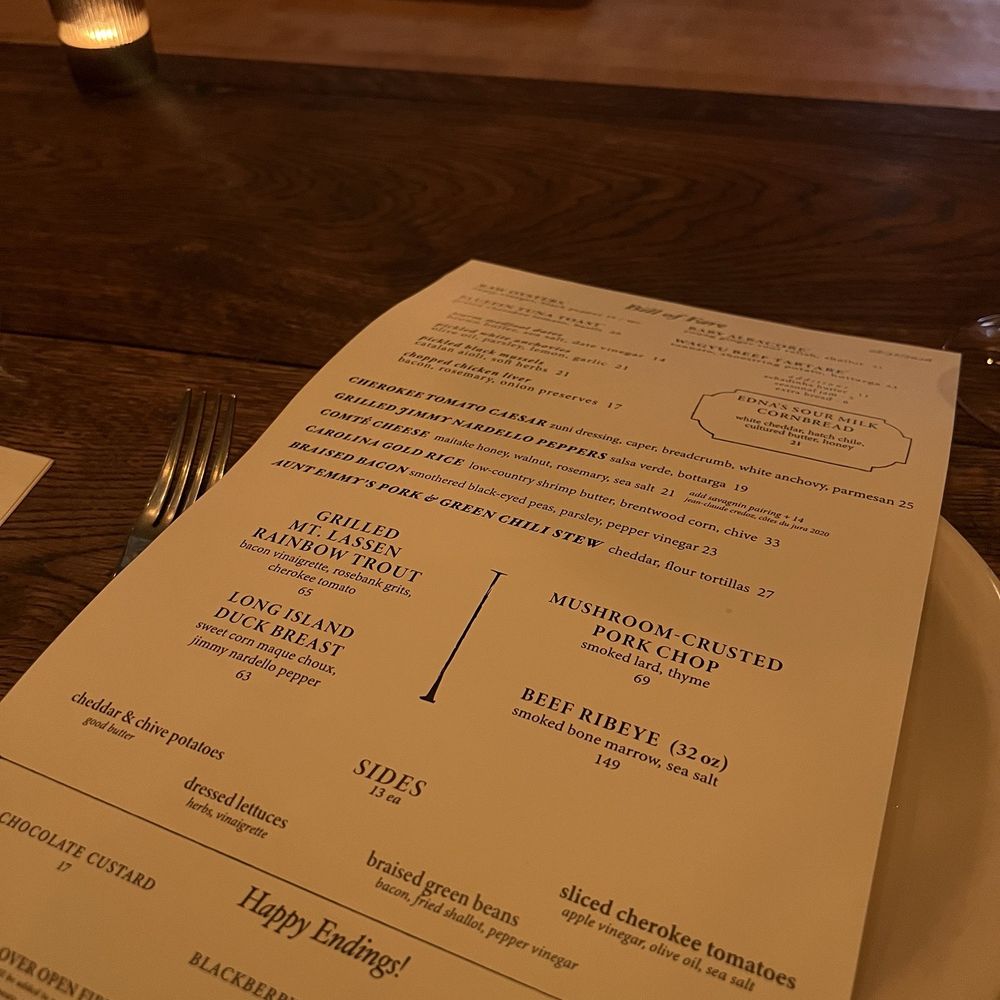 Bill of Fare
RAW OYSTERS
BLUEFIN TUNA TOAST
warm medjool dates
brown butter, sea salt, date vinegar 14
pickled white anchovies
olive oil, parsley, lemon, garlic 21
pickled black mussels
catalan aioli, soft herbs 21
chopped chicken liver
bacon, rosemary, onion preserves 17
BABY ALBACORE
WAGYU BEEF TARTARE
seasonal jam
extra bread
EDNA'S SOUR MILK
CORNBREAD
white cheddar, hatch chile,
cultured butter, honey
21
CHEROKEE TOMATO CAESAR zuni dressing, caper, breadcrumb, white anchovy, parmesan 25
GRILLED JIMMY NARDELLO PEPPERS salsa verde, bottarga 19
COMTÉ CHEESE maitake honey, walnut, rosemary, sea salt 21 add savagnin pairing + 14
jean-claude credoz, côtes du jura 2020
CAROLINA GOLD RICE low-country shrimp butter, brentwood corn, chive 33
BRAISED BACON smothered black-eyed peas, parsley, pepper vinegar 23
AUNT EMMY'S PORK & GREEN CHILI STEW cheddar, flour tortillas 27
GRILLED
MT. LASSEN
RAINBOW TROUT
bacon vinaigrette, rosebank grits,
cherokee tomato
65
LONG ISLAND
DUCK BREAST
sweet corn maque choux,
jimmy nardello pepper
63
MUSHROOM-CRUSTED
PORK CHOP
smoked lard, thyme
69
BEEF RIBEYE (32 oz)
smoked bone marrow, sea salt
149
SIDES
13 ea
cheddar & chive potatoes
good butter
dressed lettuces
herbs, vinaigrette
braised green beans
bacon, fried shallot, pepper vinegar
sliced cherokee tomatoes
apple vinegar, olive oil, sea salt
Happy Endings!
CHOCOLATE CUSTARD
17
OVER OPEN FIR
BLACKBERR